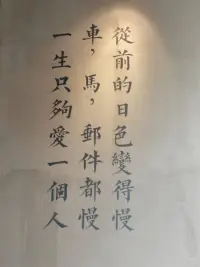 從前的日色變得慢
車，馬，郵件都慢
一生只夠愛一個人